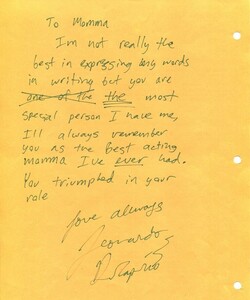 To Momma
I'm not really the
best in expressing big words
in writing but you are
one of the the most
special person I have me,
I'll always remember
you as the best acting
momma I've ever had.
You triumpted in your
role
love always
Leonardo
DiCaprio